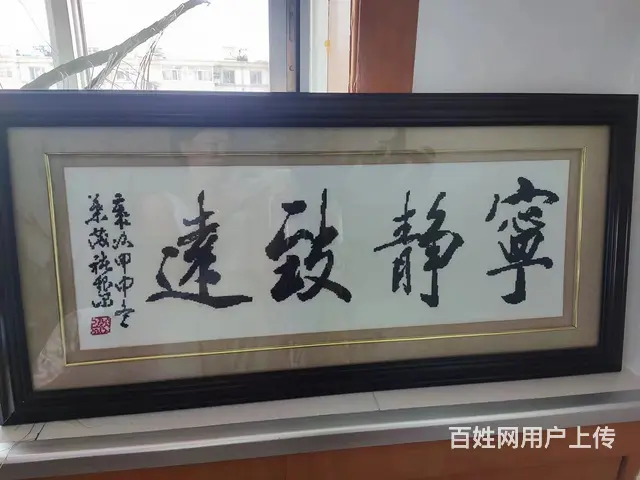 寧静致遠
甲申
百姓网用户上传